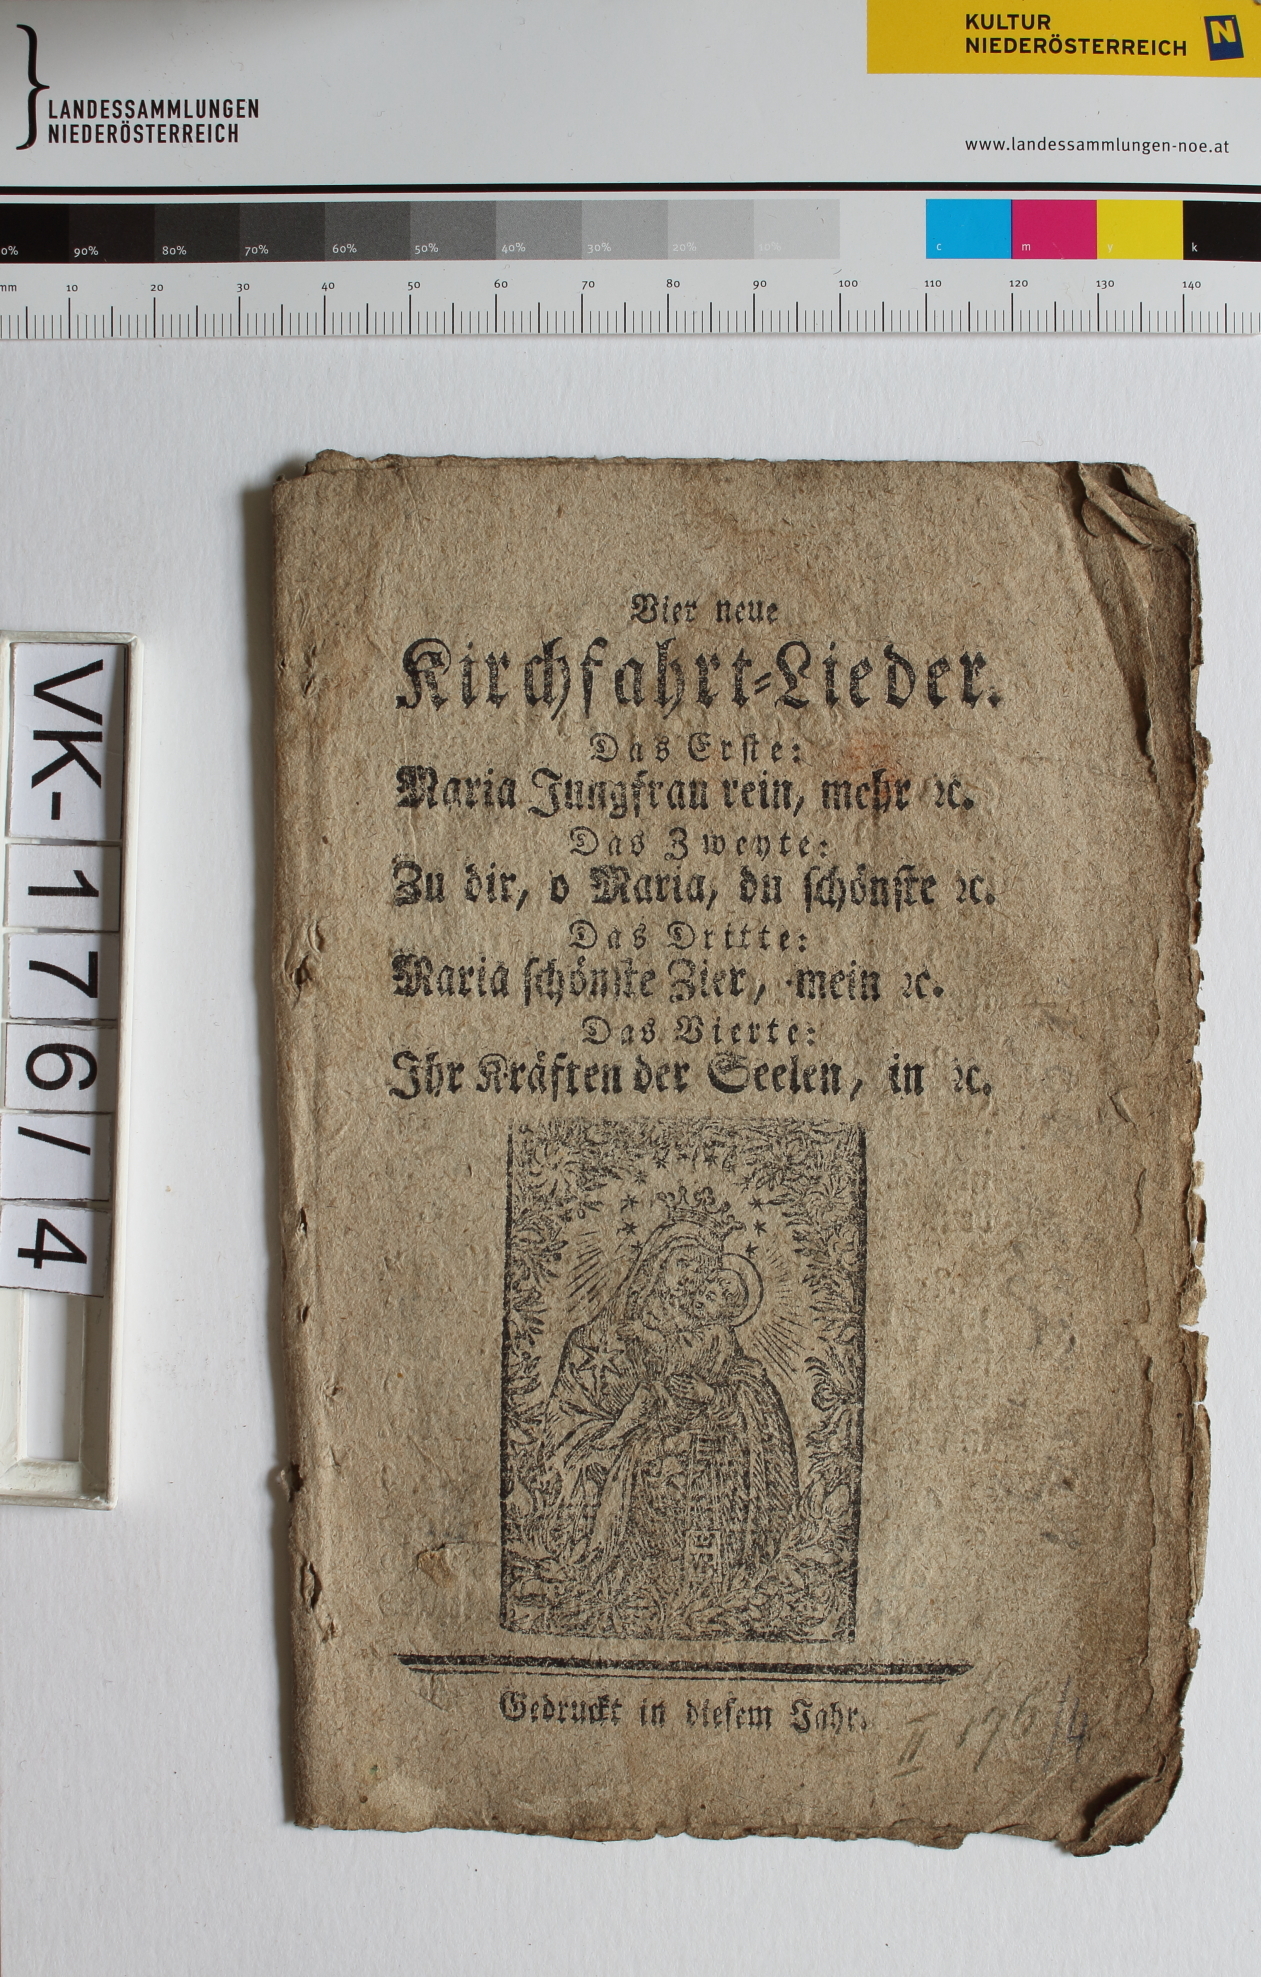 LANDESSAMMLUNGEN
NIEDERÖSTERREICH
KULTUR
NIEDERÖSTERREICH
N
www.landessammlungen-noe.at
0% 90% 80% 70% 60% 50% 40% 30% 20% 10% c m y k
mm 10 20 30 40 50 60 70 80 90 100 110 120 130 140
VK-1776/4
Vier neue
Kirchfahrt-Lieder.
Das Erste:
Maria Jungfrau rein, mehr ꝛc.
Das Zweyte:
Zu dir, o Maria, du schönste ꝛc.
Das Dritte:
Maria schönste Zier, mein ꝛc.
Das Vierte:
Ihr Kräften der Seelen, in ꝛc.
Gedruckt in diesem Jahr.